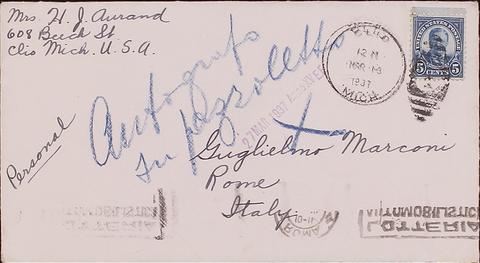 Mrs. H. J. Aurand
608 Beech St.
Clio Mich. U.S.A.
CLIO
12 M
MAR
1937
MICH.
UNITED STATES POSTAGE
5 CENTS 5
Autografo
su
27 MAR 1937
Personal
Guglielmo Marconi
Rome
Italy
LOTTERIA
LOTTERIA
ROMA